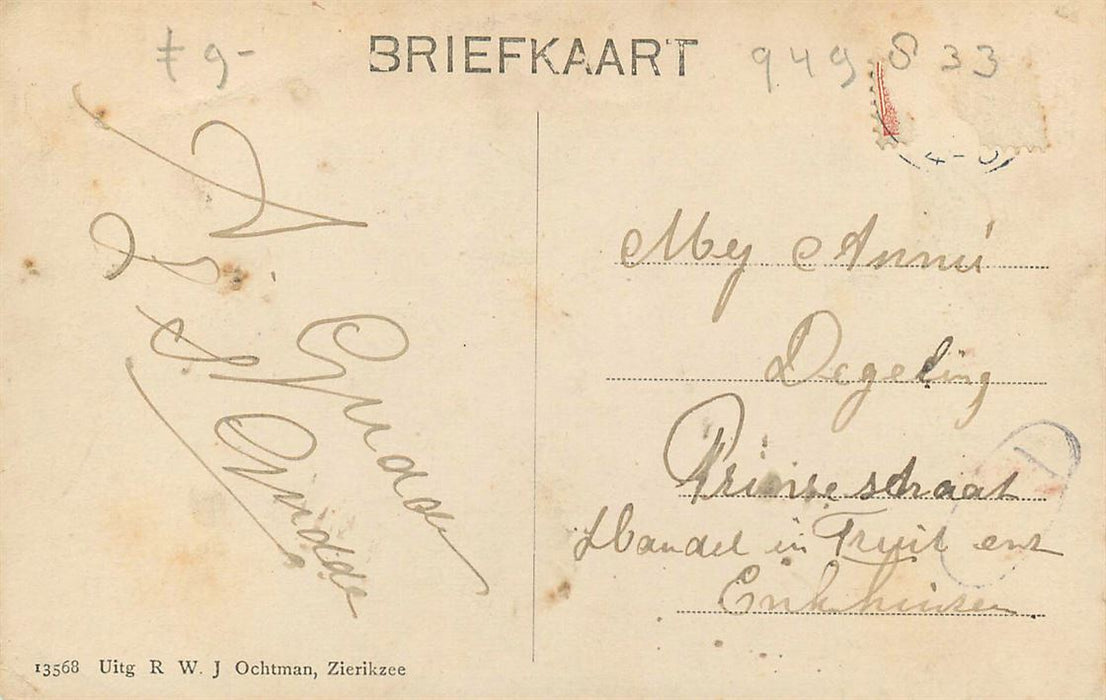 7 9-
BRIEFKAART
949 8 33
4-
Mej Annie
Degeling
Prinsestraat
Handel in Fruit enz
Enkhuizen
13568 Uitg R. W. J Ochtman, Zierikzee